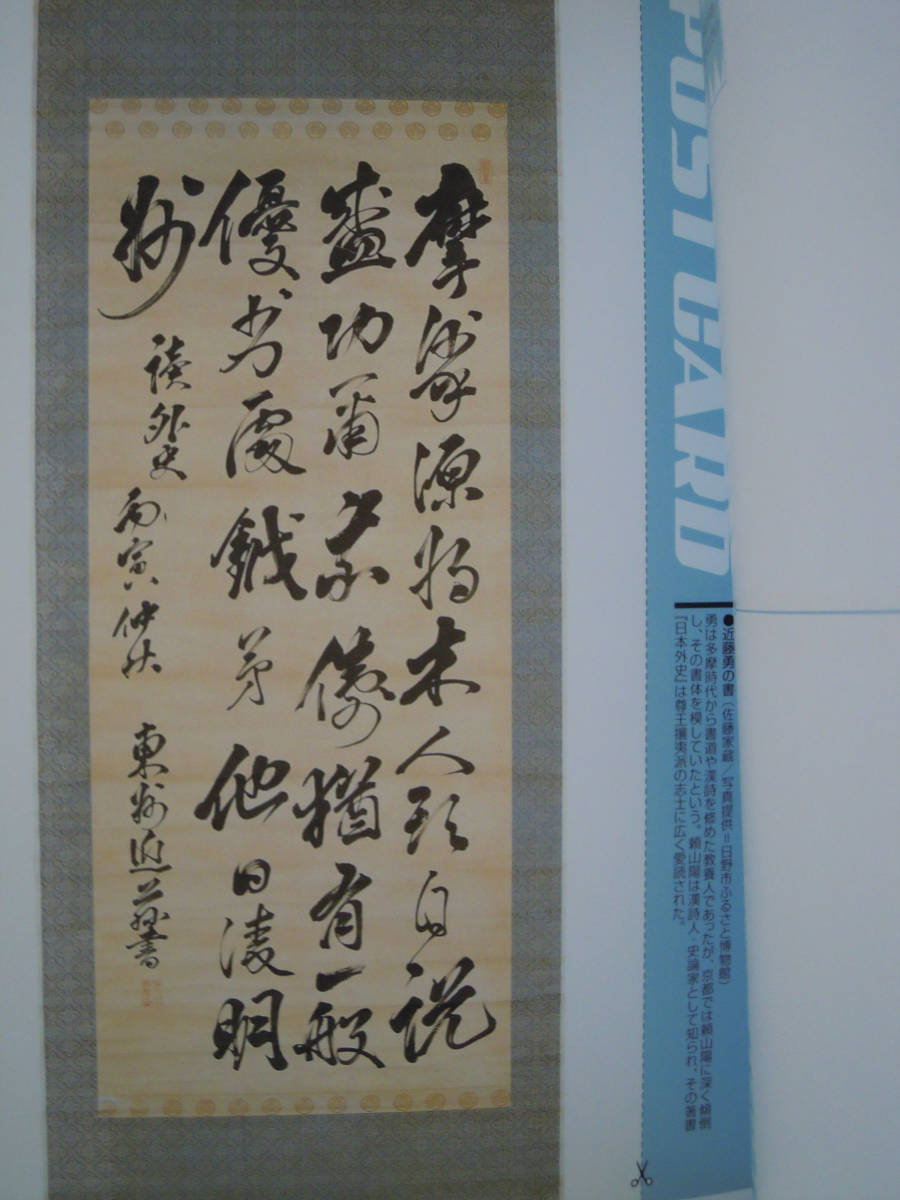 摩挲源将木人頭自説
功爾余儔猶有一般
優劣處鉞他日凌明
州
讀外史 丙寅仲秋 東州近藤書
POST CARD
●近藤勇の書（佐藤家蔵／写真提供＝日野市ふるさと博物館）
勇は多摩時代から書道や漢詩を修めた教養人であったが、京都では頼山陽に深く傾倒
し、その書体を模していたという。頼山陽は漢詩人・史論家として知られ、その著書
『日本外史』は尊王攘夷派の志士に広く愛読された。